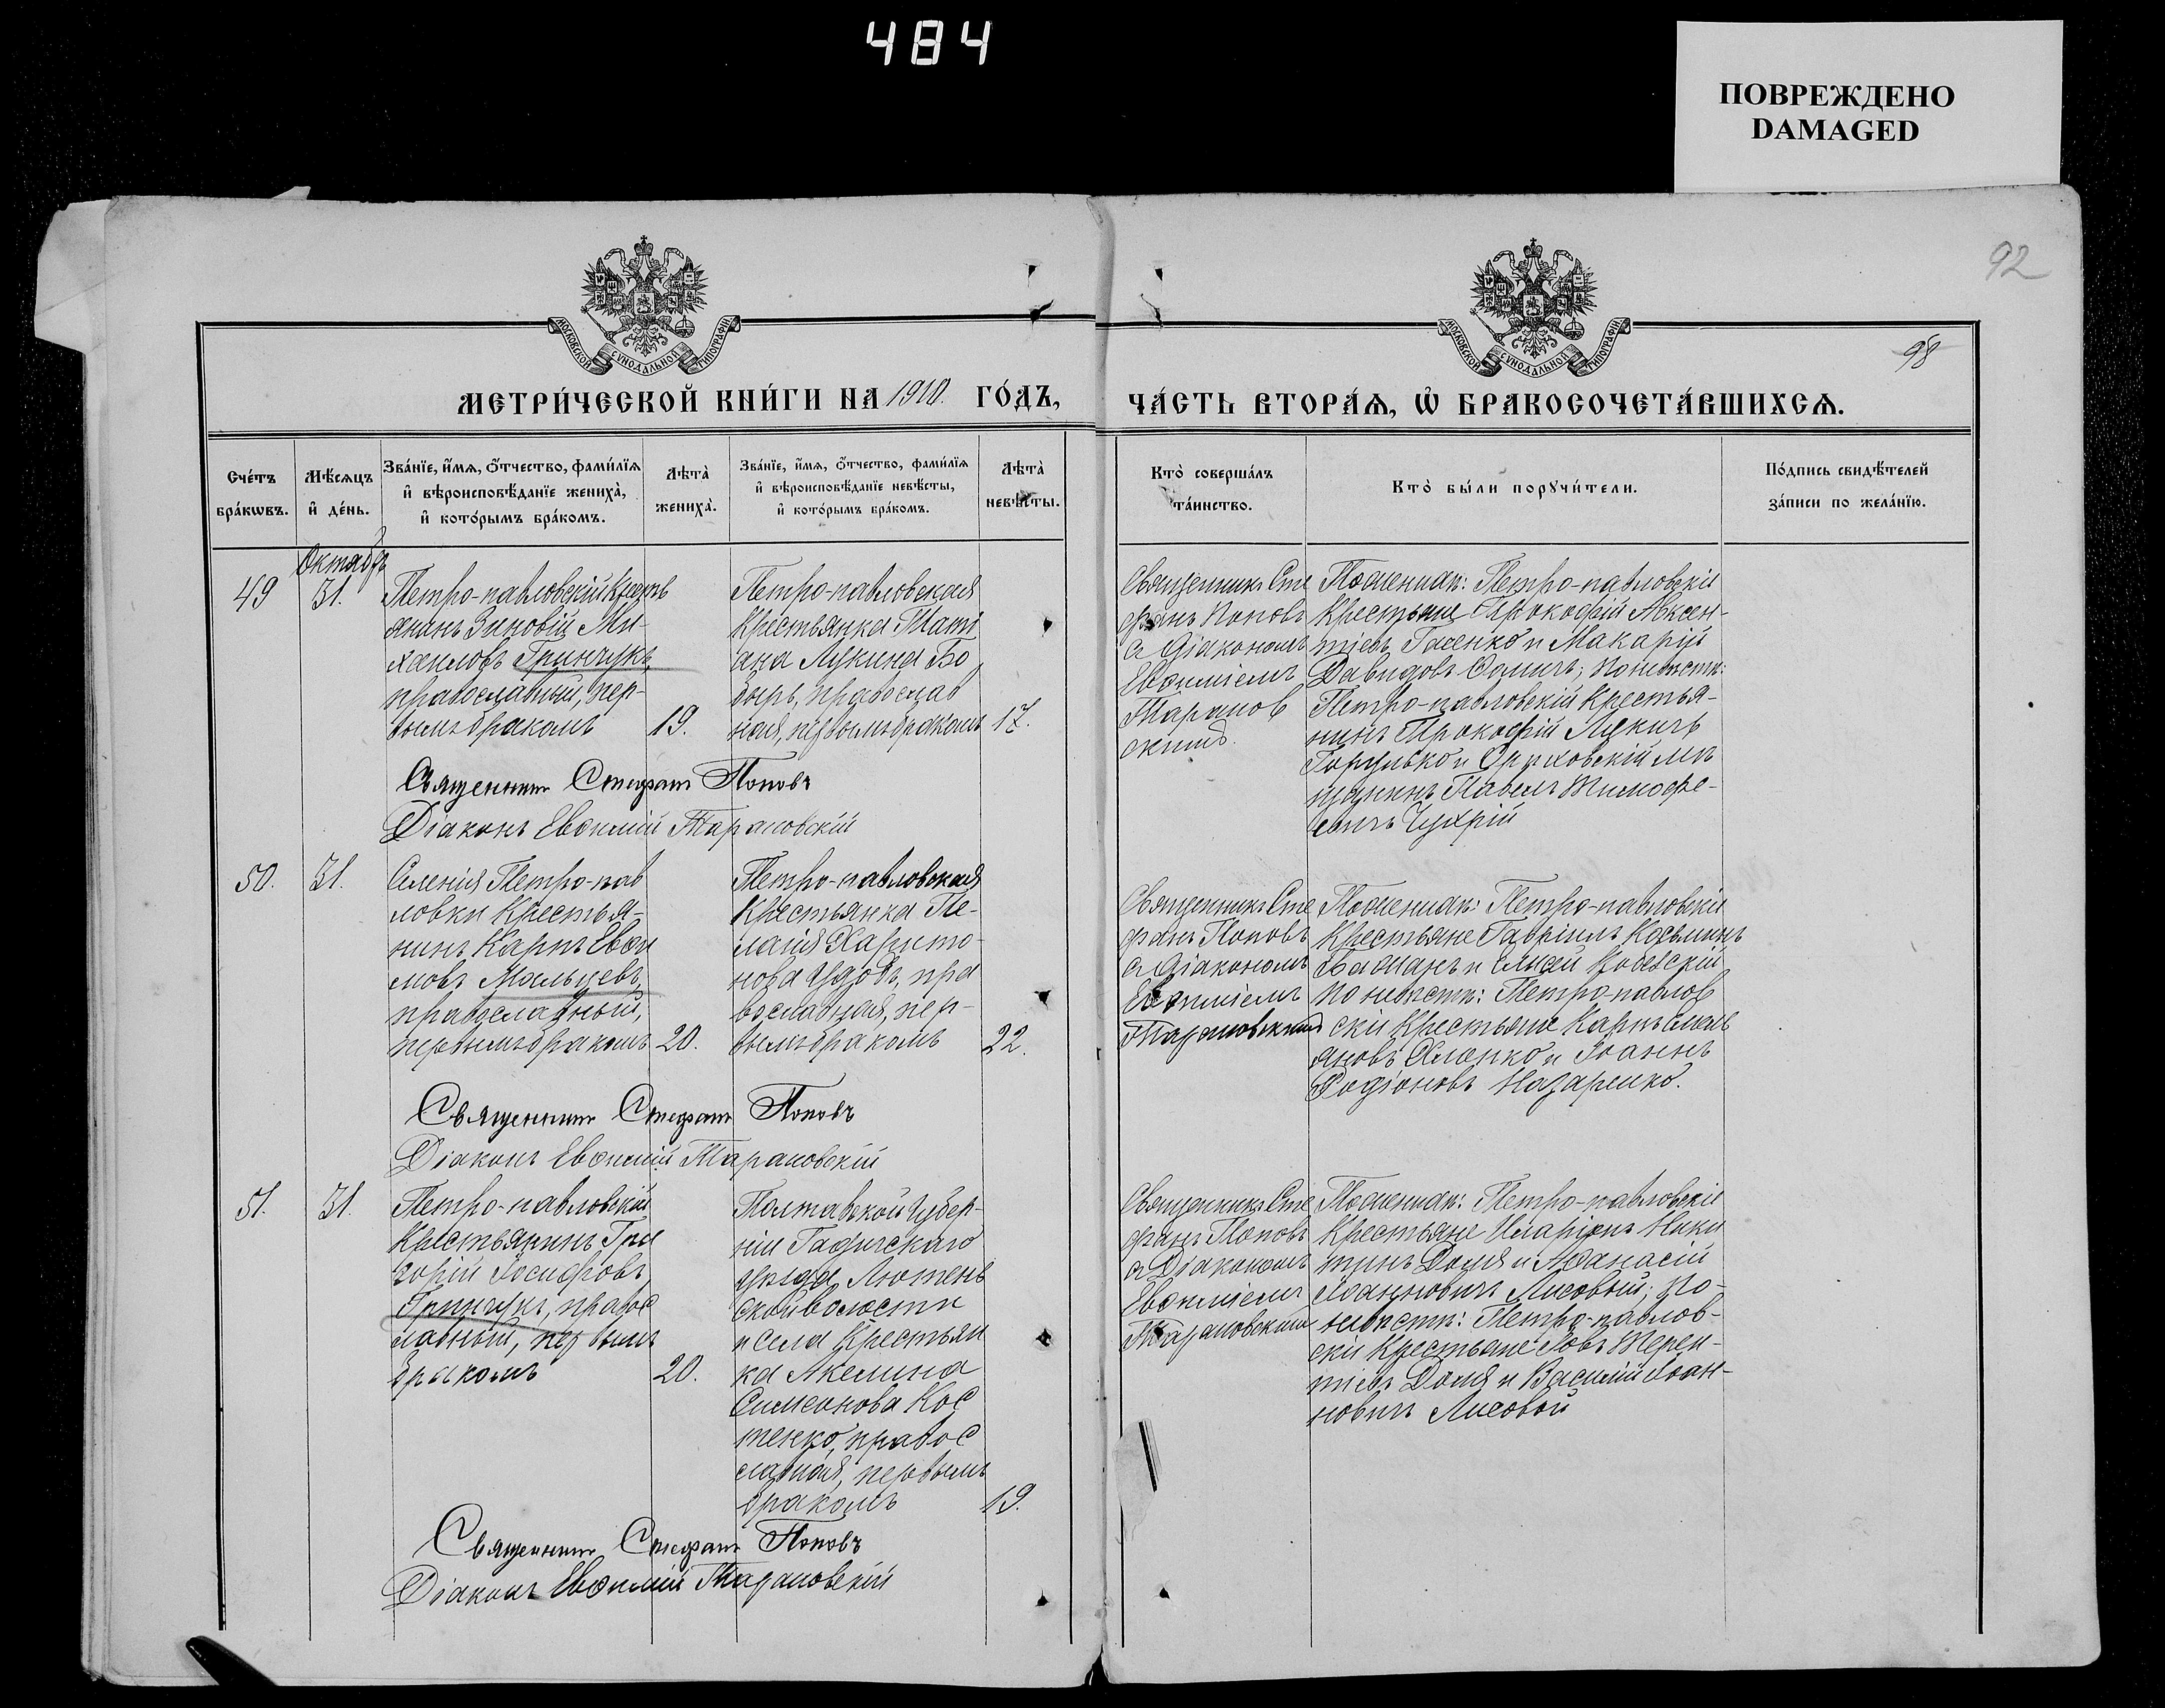 484
ПОВРЕЖДЕНО
DAMAGED
92
98
МОСКОВСКОЙ СѴНОДАЛЬНОЙ ТИПОГРАФІИ
МОСКОВСКОЙ СѴНОДАЛЬНОЙ ТИПОГРАФІИ
МЕТРИ́ЧЕСКОЙ КНИ́ГИ НА 1910. ГО́ДЪ,
ЧА́СТЬ ВТОРА́Ѧ, Ѡ҆ БРАКОСОЧЕТА́ВШИХСѦ.
Сче́тъ
бра́кѡвъ.
Мѣ́сѧцъ
и҆ де́нь.
Зва́нїе, и҆́мѧ, ѻ҆́тчество, фами́лїѧ
и҆ вѣроисповѣ́данїе жениха̀,
и҆ кото́рымъ бра́комъ.
Лѣта̀
жениха̀.
Зва́нїе, и҆́мѧ, ѻ҆́тчество, фами́лїѧ
и҆ вѣроисповѣ́данїе невѣ́сты,
и҆ кото́рымъ бра́комъ.
Лѣта̀
невѣ́сты.
Кто̀ соверша́лъ
та́инство.
Кто̀ бы́ли порꙋчи́тели.
По́дпись свидѣ́телей
за́писи по жела́нїю.
Октябрь
49
31.
Петро-павловскій крестъ
янинъ Зиновій Ми-
хаиловъ Гринчукъ,
православный, пер-
вымъ бракомъ
19.
Петро-павловская
крестьянка Тати
ана Лукина Бо
дыръ, православ
ная, первымъ бракомъ
17.
Священникъ Сте
фанъ Поповъ
съ діакономъ
Евѳиміемъ
Таранов
скимъ.
По женихѣ: Петро-павловскіе
крестьяне Прокофій Аксен-
тіевъ Гасенко и Макарій
Давидовъ; по невѣстѣ:
Петро-павловскій крестья-
нинъ Прокофій Лукичъ
Горулько и Орѣховскій мѣ
щанинъ Павелъ Тимофе-
евичъ Чухрій
Священникъ Стефанъ Поповъ
Діаконъ Евѳимій Тарановскій
50.
31.
Селенія Петро-пав
ловки крестья-
нинъ Карпъ Евѳи
мовъ Мальцевъ,
православный,
первымъ бракомъ
20.
Петро-павловская
крестьянка Пе-
лагія Харито-
нова Удодъ, пра
вославная, пер-
вымъ бракомъ
22.
Священникъ Сте
фанъ Поповъ
съ діакономъ
Евѳиміемъ
Тарановскимъ
По женихѣ: Петро-павловскіе
крестьяне Гавріилъ Козьминъ
и Елисей
по невѣстѣ: Петро-павлов
скіе крестьяне Карпъ Емель
яновъ и Іоаннъ
Родіоновъ Назаренко.
Священникъ Стефанъ Поповъ
Діаконъ Евѳимій Тарановскій
51.
31.
Петро-павловскій
крестьянинъ Гри
горій Іосифовъ
Гринчукъ, правос
лавный, первымъ
бракомъ
20.
Полтавской губер-
ніи Гадячскаго
уѣзда Лютень
ской волости
и села крестьян
ка Акелина
Симеонова Кос
тенко, правос
лавная, первымъ
бракомъ
19.
Священникъ Сте
фанъ Поповъ
съ Діакономъ
Евѳиміемъ
Тарановскимъ
По женихѣ: Петро-павловскіе
крестьяне Иларіонъ Ники
тинъ Доля и Аѳанасій
Іоанновичъ Лисовый; по-
невѣстѣ: Петро-павлов-
скіе крестьяне Іовъ Терен-
тіевъ Доля и Василій Іоан-
новичъ Лисовой
Священникъ Стефанъ Поповъ
Діаконъ Евѳимій Тарановскій